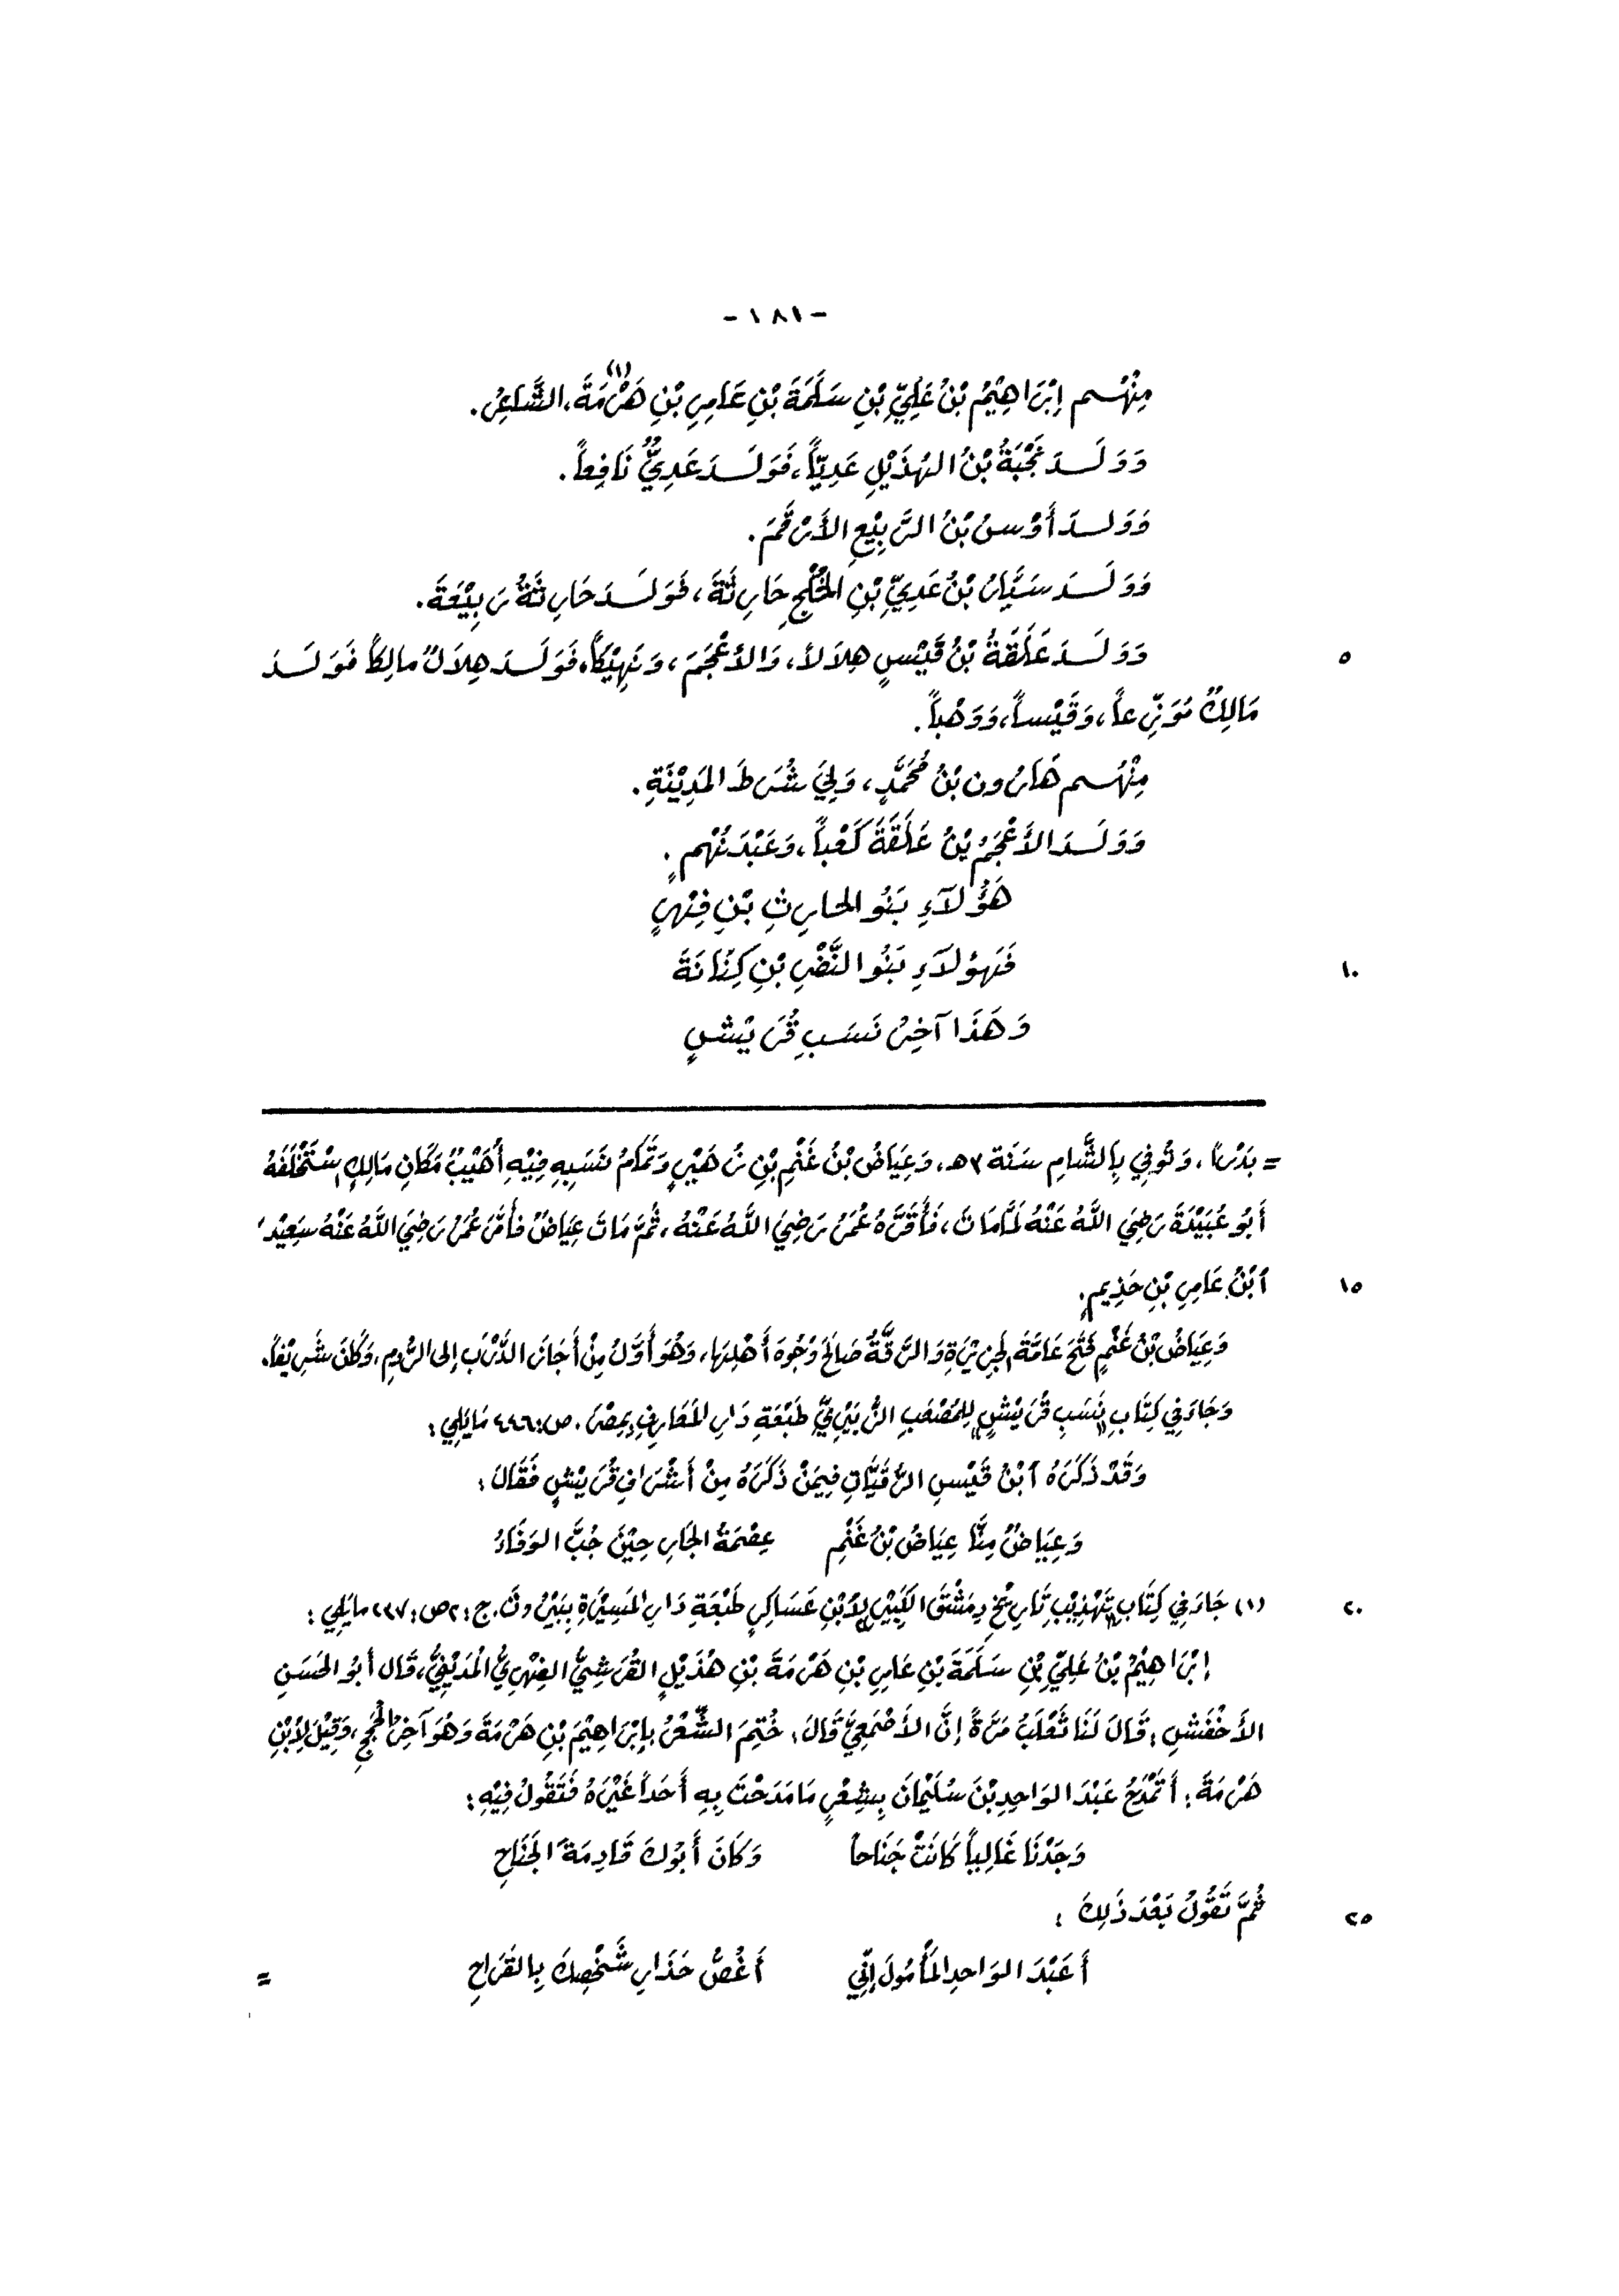 -١٨١-
مِنْهُم إِبْرَاهِيْمُ بْنُ عَلِيِّ بْنِ سَلَمَةَ بْنِ عَامِرِ بْنِ هَرْمَةَ(١)، الشَّاعِرُ.
وَوَلَدَ نَجْبَةُ بْنُ الهُذَيْلِ عَدِيّاً، فَوَلَدَ عَدِيٌّ نَافِعاً.
وَوَلَدَ أَوْسُ بْنُ الرَّبِيْعِ الأَرْقَمَ.
وَوَلَدَ سَيَّارُ بْنُ عَدِيِّ بْنِ الخُلْجِ حَارِثَةَ، فَوَلَدَ حَارِثَةُ رَبِيْعَةَ.
وَوَلَدَ عَلَقَةُ بْنُ قَيْسٍ هِلَالاً، وَالأَعْجَمَ، وَنَهِيْكاً، فَوَلَدَ هِلَالٌ مالِكاً فَوَلَدَ ٥
مَالِكٌ مُوَزِّعاً، وَقَيْساً، وَوَهْباً.
مِنْهُم هَارُون بْنُ مُحَمَّدٍ، وَلِيَ شُرَطَ المَدِيْنَةِ.
وَوَلَدَ الأَعْجَمُ بْنُ عَلَقَةَ كَعْباً، وَعَبْدَ نُهْمٍ.
هَؤُلَآءِ بَنُو الحَارِثِ بْنِ فِهْرٍ
فَهؤلَآءِ بَنُو النَّضْرِ بْنِ كِنَانَةَ ١٠
وَهَذَا آخِرُ نَسَبِ قُرَيْشٍ
= بَدْراً، وَتُوفِي بِالشَّامِ سَنَة ٣هـ، وَعِيَاضُ بْنُ غَنْمِ بْنِ زُهَيْرٍ وَتَمَامُ نَسَبِهِ فِيْهِ أُهَيْبٌ مَكَانِ مَالِكٍ اسْتَخْلَفَهُ
أَبُو عُبَيْدَةَ رَضِيَ اللَّهُ عَنْهُ لَمَّا مَاتَ، فَأَقَرَّهُ عُمَرُ رَضِيَ اللَّهُ عَنْهُ، ثُمَّ مَاتَ عِيَاضٌ فأَمَّرَ عُمَرُ رَضِيَ اللَّهُ عَنْهُ سَعِيْدَ
ٱبْنَ عَامِرِ بْنِ حَذِيمٍ. ١٥
وَعِيَاضُ بْنُ غَنْمٍ فَتَحَ عَامَّةَ الجَزِيْرَةِ وَالرَّقَّةُ صَالَحَ وُجُوهَ أَهْلِهَا، وَهُوَ أَوَّلُ مِنْ أَجَازَ الدَّرْبَ إلى الرُّومِ، وَكَانَ شَرِيْفاً.
وَجَاءَ فِي كِتَابِ "نَسَبِ قُرَيْشٍ" لِلمُصْعَبِ الزُّبَيْرِيِّ طَبْعَةِ دَارِ المَعَارِفِ بِمِصْرَ. ص: ٤٤٦ مَايَلِي:
وَقَدْ ذَكَرَهُ ٱبْنُ قَيْسِ الرُّقَيَّاتِ فِيمَنْ ذَكَرَهُ مِنْ أَشْرَافِ قُرَيْشٍ فَقَالَ:
وَعِيَاضٌ مِنَّا عِيَاضُ بْنُ غَنْمِ عِصْمَةُ الجَارِ حِيْنَ جُبَّ الوَفَاءُ
(١) جَاءَ فِي كِتَابِ "تَهْذِيْبِ تَارِيْخِ دِمَشْقَ الكَبِيْرِ" لِابْنِ عَسَاكِرٍ طَبْعَةِ دَارِ المَسِيْرَةِ بِبَيْرُوتَ. ج: ٢ ص: ٢٣٧ مايَلِي: ٢٠
إِبْرَاهِيْمُ بْنُ عَلِيِّ بْنِ سَلَمَةَ بْنِ عَامِرِ بْنِ هَرْمَةَ بْنِ هُذَيْلٍ القُرَشِيُّ الفِهْرِيُّ المَدِيْنِيُّ، قَال أبُو الحَسَنِ
الأَخْفَشِ: قَالَ لَنَا ثَعْلَبُ مَرَّةً إِنَّ الأَصْمَعِيَّ قَالَ: خُتِمَ الشِّعْرُ بإبْرَاهِيْمَ بْنِ هَرْمَةَ وَهُوَ آخِرُ الحُجَجِ، وَقِيْلَ لِابْنِ
هَرْمَةَ: أَتَمْدَحُ عَبْدَ الوَاحِدِ بْنَ سُلَيْمَانَ بِشِعْرٍ مَا مَدَحْتَ بِهِ أَحَداً غَيْرَهُ فَتَقُولُ فِيْهِ:
وَجَدْنَا غَالِباً كَانَتْ جَنَاحاً وَكَانَ أَبُوكَ قَادِمَةَ الجَنَاحِ
ثُمَّ تَقُولُ بَعْدَ ذَلِكَ: ٢٥
أَعَبْدَ الوَاحِدِ المَأْمُولَ إِنِّي أَغُصُّ حَذَارِ شَخْصِكَ بِالقَرَاحِ =